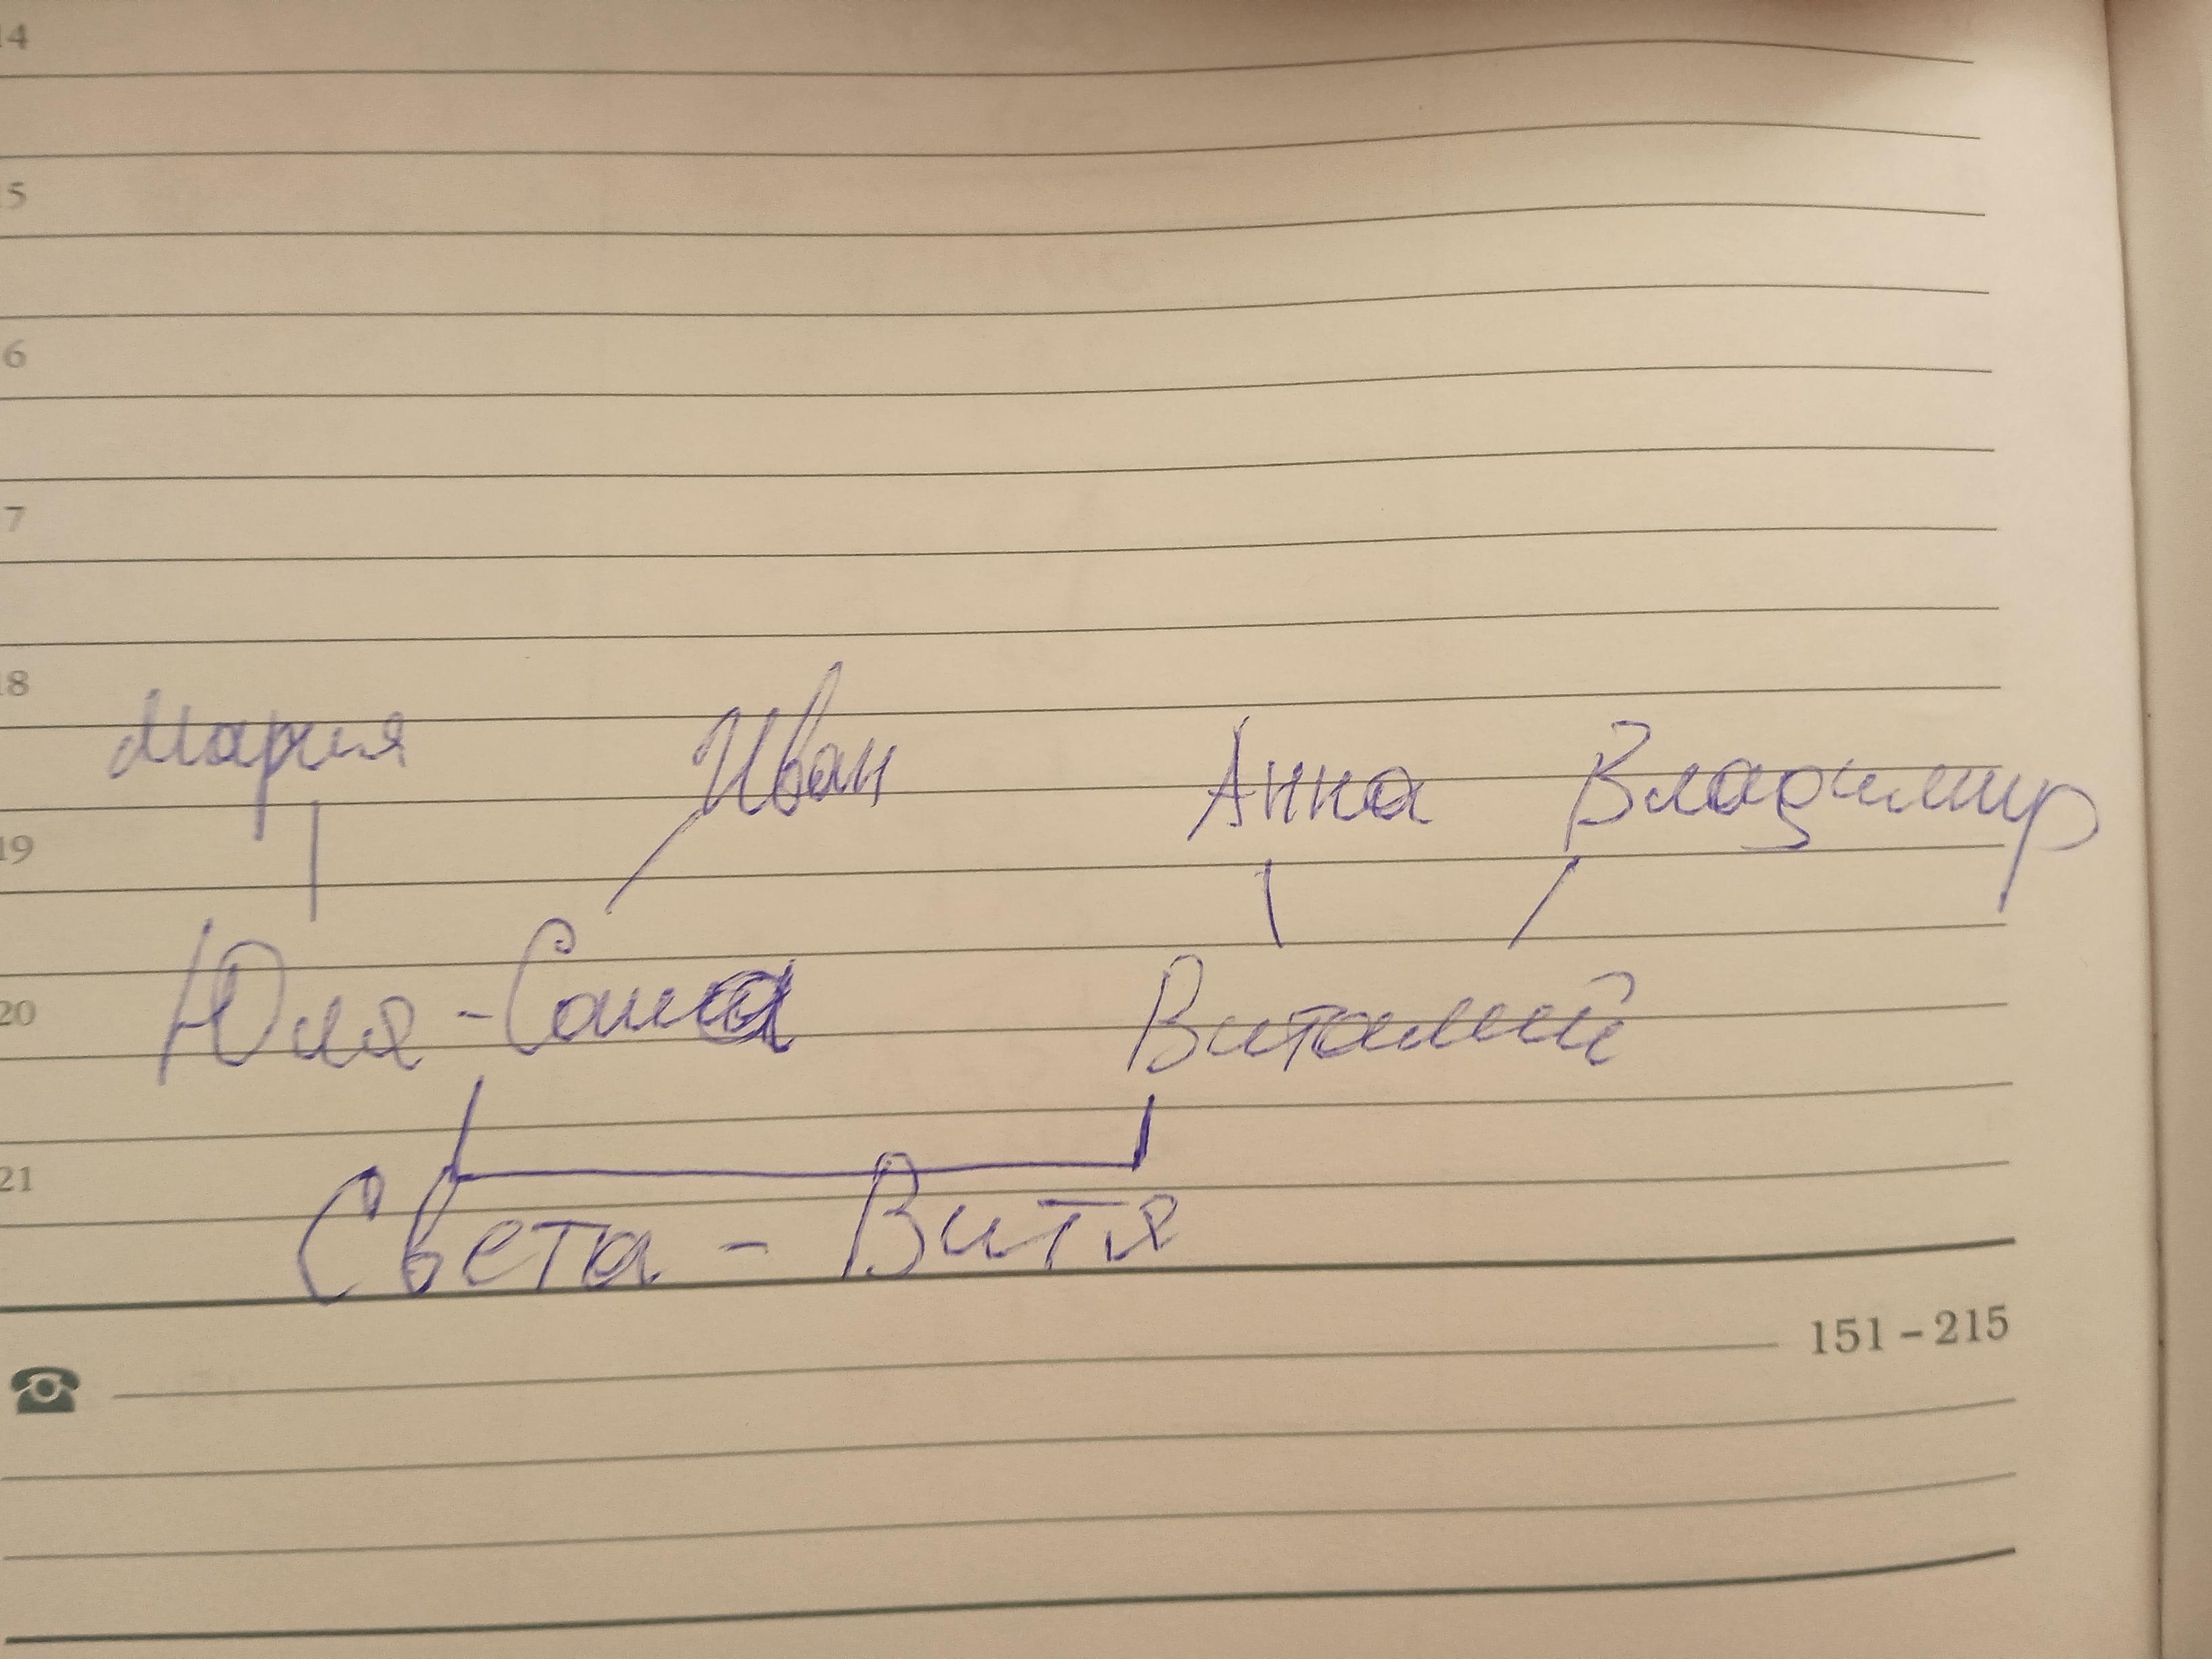 14
15
6
7
18
Мария Иван Анна Владимир
19
Юля - Саша Виталий
20
21
Света - Витя
151 - 215